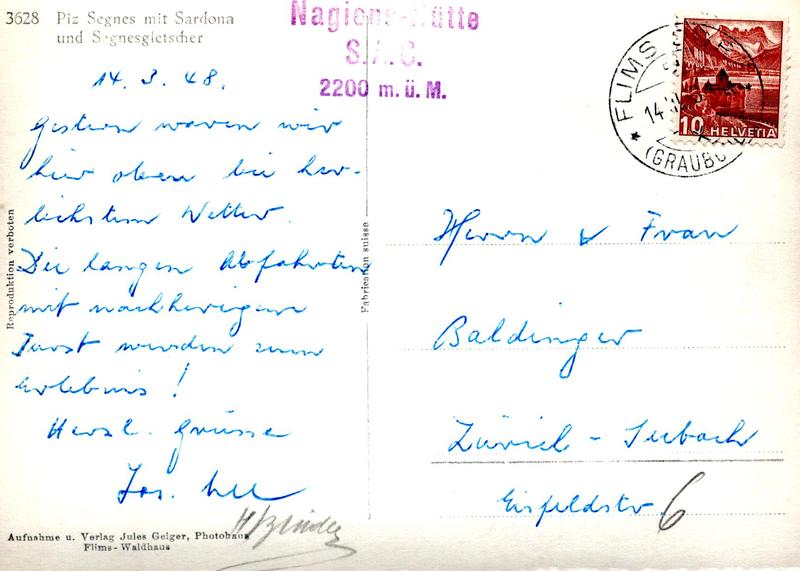 3628 Piz Segnes mit Sardona
und Segnesgletscher
Nagiens-Hütte
S.A.C.
2200 m.ü.M.
FLIMS
14
(GRAUBÜ
10 HELVETIA
14. 3. 48.
Gestern waren wir
hier oben bei herr-
lichstem Wetter.
Die langen Abfahrten
mit nachherigem
Durst wurden zum
Erlebnis!
Herzl. Grüsse
Jos.
Herrn & Frau
Baldinger
Zürich - Seebach
Eisfeldstr 6
Reproduktion verboten
Fabrication suisse
Aufnahme u. Verlag Jules Geiger, Photohaus
Flims-Waldhaus